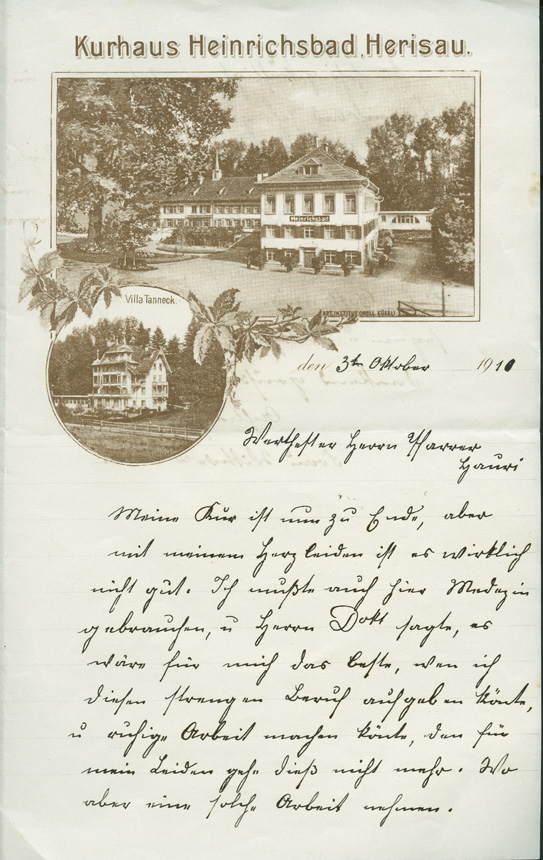 Kurhaus Heinrichsbad, Herisau.
Heinrichsbad
ART. INSTITUT ORELL FÜSSLI
Villa Tanneck.
den 3ten Oktober 1910
Werthester Herrn Pfarrer
Hauri
Meine Kur ist nun zu Ende, aber
mit meinem Herzleiden ist es wirklich
nicht gut. Ich mußte auch hier Medezin
gebrauchen, u Herrn Dokt sagte, es
wäre für mich das beste, wen ich
diesen strengen Beruf aufgeben könte,
u ruhige Arbeit machen könte, den für
mein Leiden gehe dieß nicht mehr. Wo
aber eine solche Arbeit nehmen.